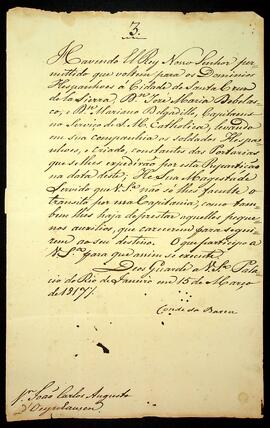 3.
Havendo El Rey Nosso Senhor per-
mittido que voltem para os Dominios
Hespanhoes á Cidade de Santa Cruz
de la Sierra, D. José Maria
co, e D. Mariano Delgadillo, Capitaens
no Serviço de S. M. Catholica, levando
em sua companhia os soldados Hespa-
nhoes, e criado, constantes das Portarias
que se lhes expedirão por esta Repartição
na data deste; He Sua Magestade
Servido que V. S.ª não só lhes faculte o
tranzito por essa Capitania, como tam-
bem lhes haja de prestar aquelles peque-
nos auxilios, que carecerem para segui-
rem ao seu destino. O que participo a
V. S.ª para que assim se execute.
Deos Guarde a V. S.ª Pala-
cio do Rio de Janeiro em 15 de Março
de 1817
Conde da Barca
Sr. João Carlos Augusto
d'Oeynhausen